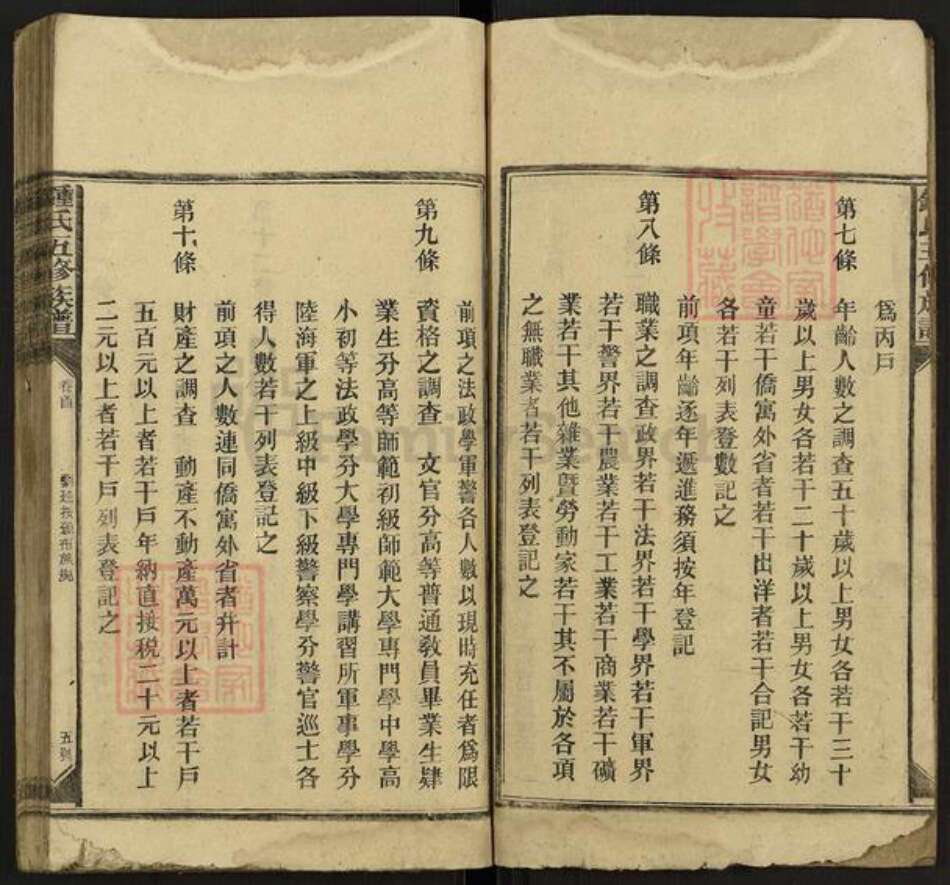 爲丙戶
第七條　年齡人數之調查五十歲以上男女各若干三十
歲以上男女各若干二十歲以上男女各若干幼
童若干僑寓外省者若干出洋者若干合記男女
各若干列表登數記之
前項年齡逐年遞進務須按年登記
第八條　職業之調查政界若干法界若干學界若干軍界
若干警界若干農業若干工業若干商業若干礦
業若干其他雜業曁勞動家若干其不屬於各項
之無職業者若干列表登記之
前項之法政學軍警各人數以現時充任者爲限
第九條　資格之調查　文官分高等普通敎員畢業生肄
業生分高等師範初級師範大學專門學中學高
小初等法政學分大學專門學講習所軍事學分
陸海軍之上級中級下級警察學分警官巡士各
得人數若干列表登記之
前項之人數連同僑寓外省者幷計
第十條　財產之調查　動產不動產萬元以上者若干戶
五百元以上者若干戶年納直接稅二十元以上
二元以上者若干戶列表登記之
鍾氏五修族譜
卷首
五